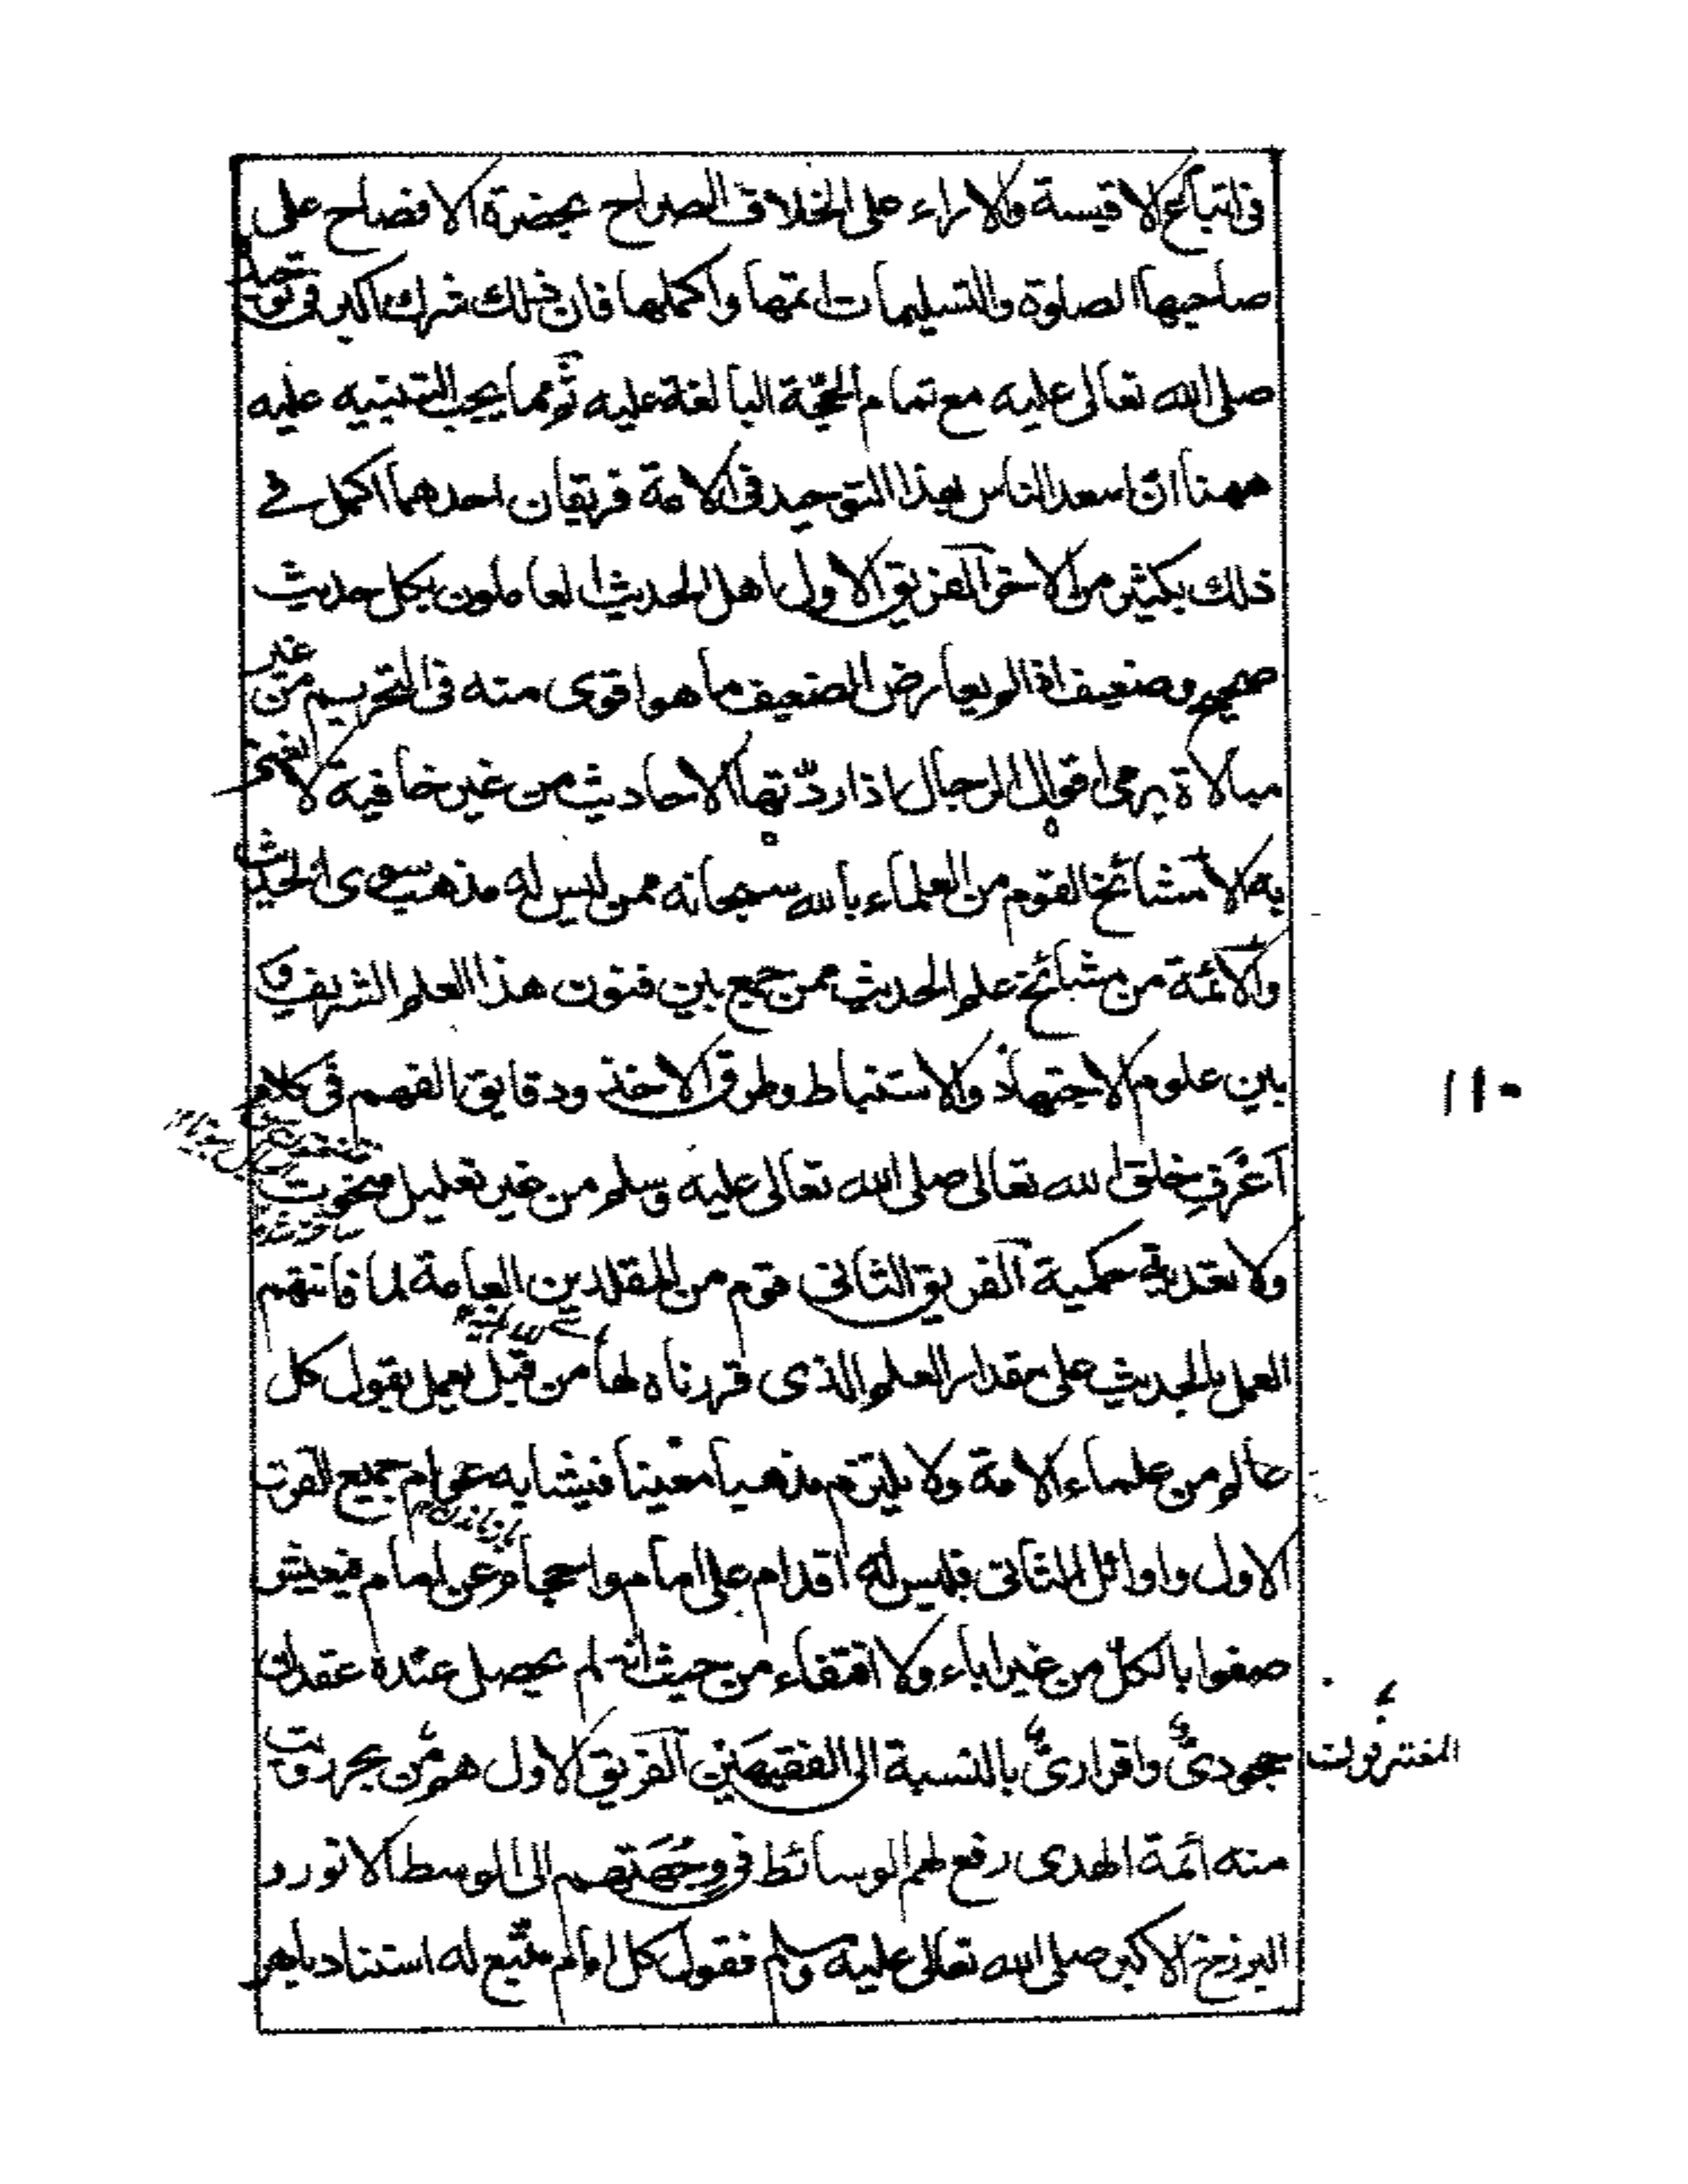 فى اتباع الاقيسة والاراء على الخلاف الصراح بحضرة الافصاح على
صاحبها الصلوة والتسليمات اتمها واكملها فان ذلك شرك اكبر فى توحيده
صلى الله تعالى عليه مع تمام الحجة البالغة عليه ثم مما يجب التنبيه عليه
ههنا ان اسعد الناس بهذا التوحيد فى الامة فريقان احدهما اكمل فى
ذلك بكثير من الاخر الفريق الاول اهل الحديث العاملون بكل حديث
صحيح وضعيف اذا لم يعارض الضعيف ما هو اقوى منه فى التحريم من غير
مبالاة برمى اقوال الرجال اذا ردتها الاحاديث من غير خافية لا
به الا مشائخ القوم من العلماء بالله سبحانه ممن ليس له مذهب سوى الحديث
والائمة من مشائخ علم الحديث ممن جمع بين فنون هذا العلم الشريف و
بين علوم الاجتهاد والاستنباط وطرق الاخذ ودقايق الفهم فى كلام
اعرف خلق الله تعالى صلى الله تعالى عليه وسلم من غير تعليل منحوت
ولا تعدية حكمية الفريق الثانى قوم من المقلدين العامة لما فاتتهم
العمل بالحديث على مقدار العلم الذى قررناه لها من قبل يعمل بقول كل
عالم من علماء الامة ولا يلتزم مذهبا معينا فيشابه عوام جميع القرن
الاول واوائل الثانى فليس له اقدام على امام واحجام عن امام فيعيش
صفوا بالكل من غير اباء ولا اقتفاء من حيث انه لم يحصل عنده عقدان
جحودى واقرارى بالنسبة الى الفقيهين الفريق الاول هم من بحر
منه ائمة الهدى رفع لهم الوسائط فى وجهتهم الى الوسط الانور و
البرزخ الاكبر صلى الله تعالى عليه وسلم فقول كل امام متبع له استناد
١١٠